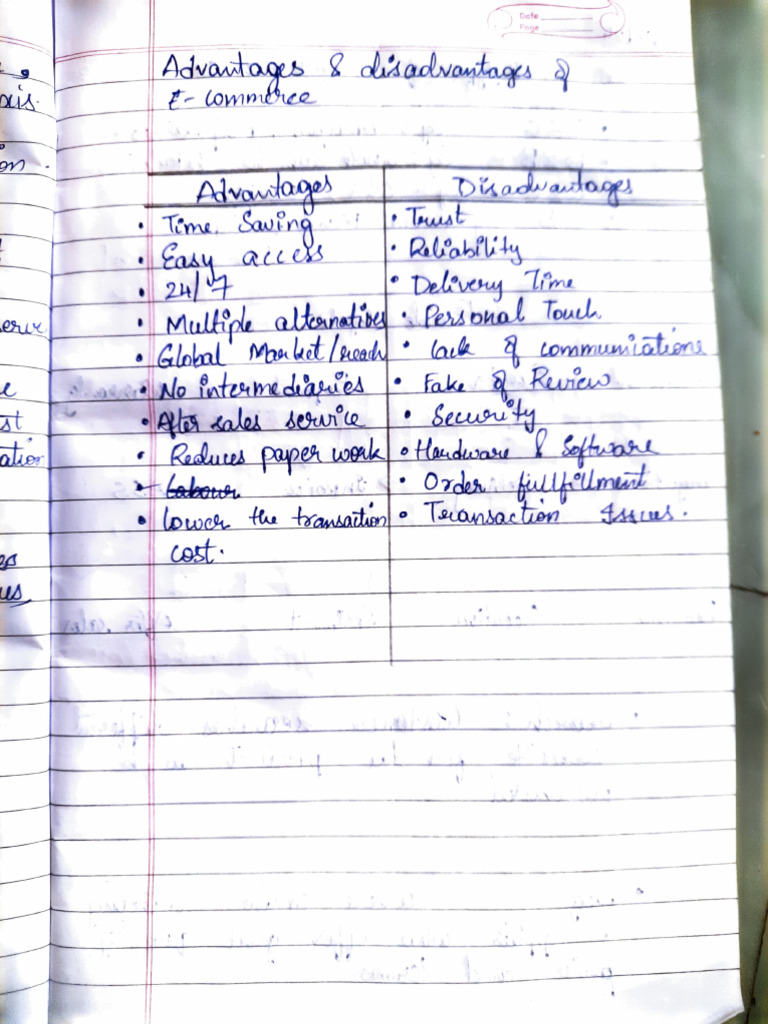 Date
Page
Advantages & disadvantages of
E-commerce
Advantages Disadvantages
• Time Saving • Trust
• Easy access • Reliability
• 24/7 • Delivery Time
• Multiple alternatives • Personal Touch
• Global Market/reach • lack of communications
• No intermediaries • Fake of Review
• After sales service • Security
• Reduces paper work • Hardware & Software
• Labour • Order fullfillment
• Lower the transaction • Transaction Issues.
cost.